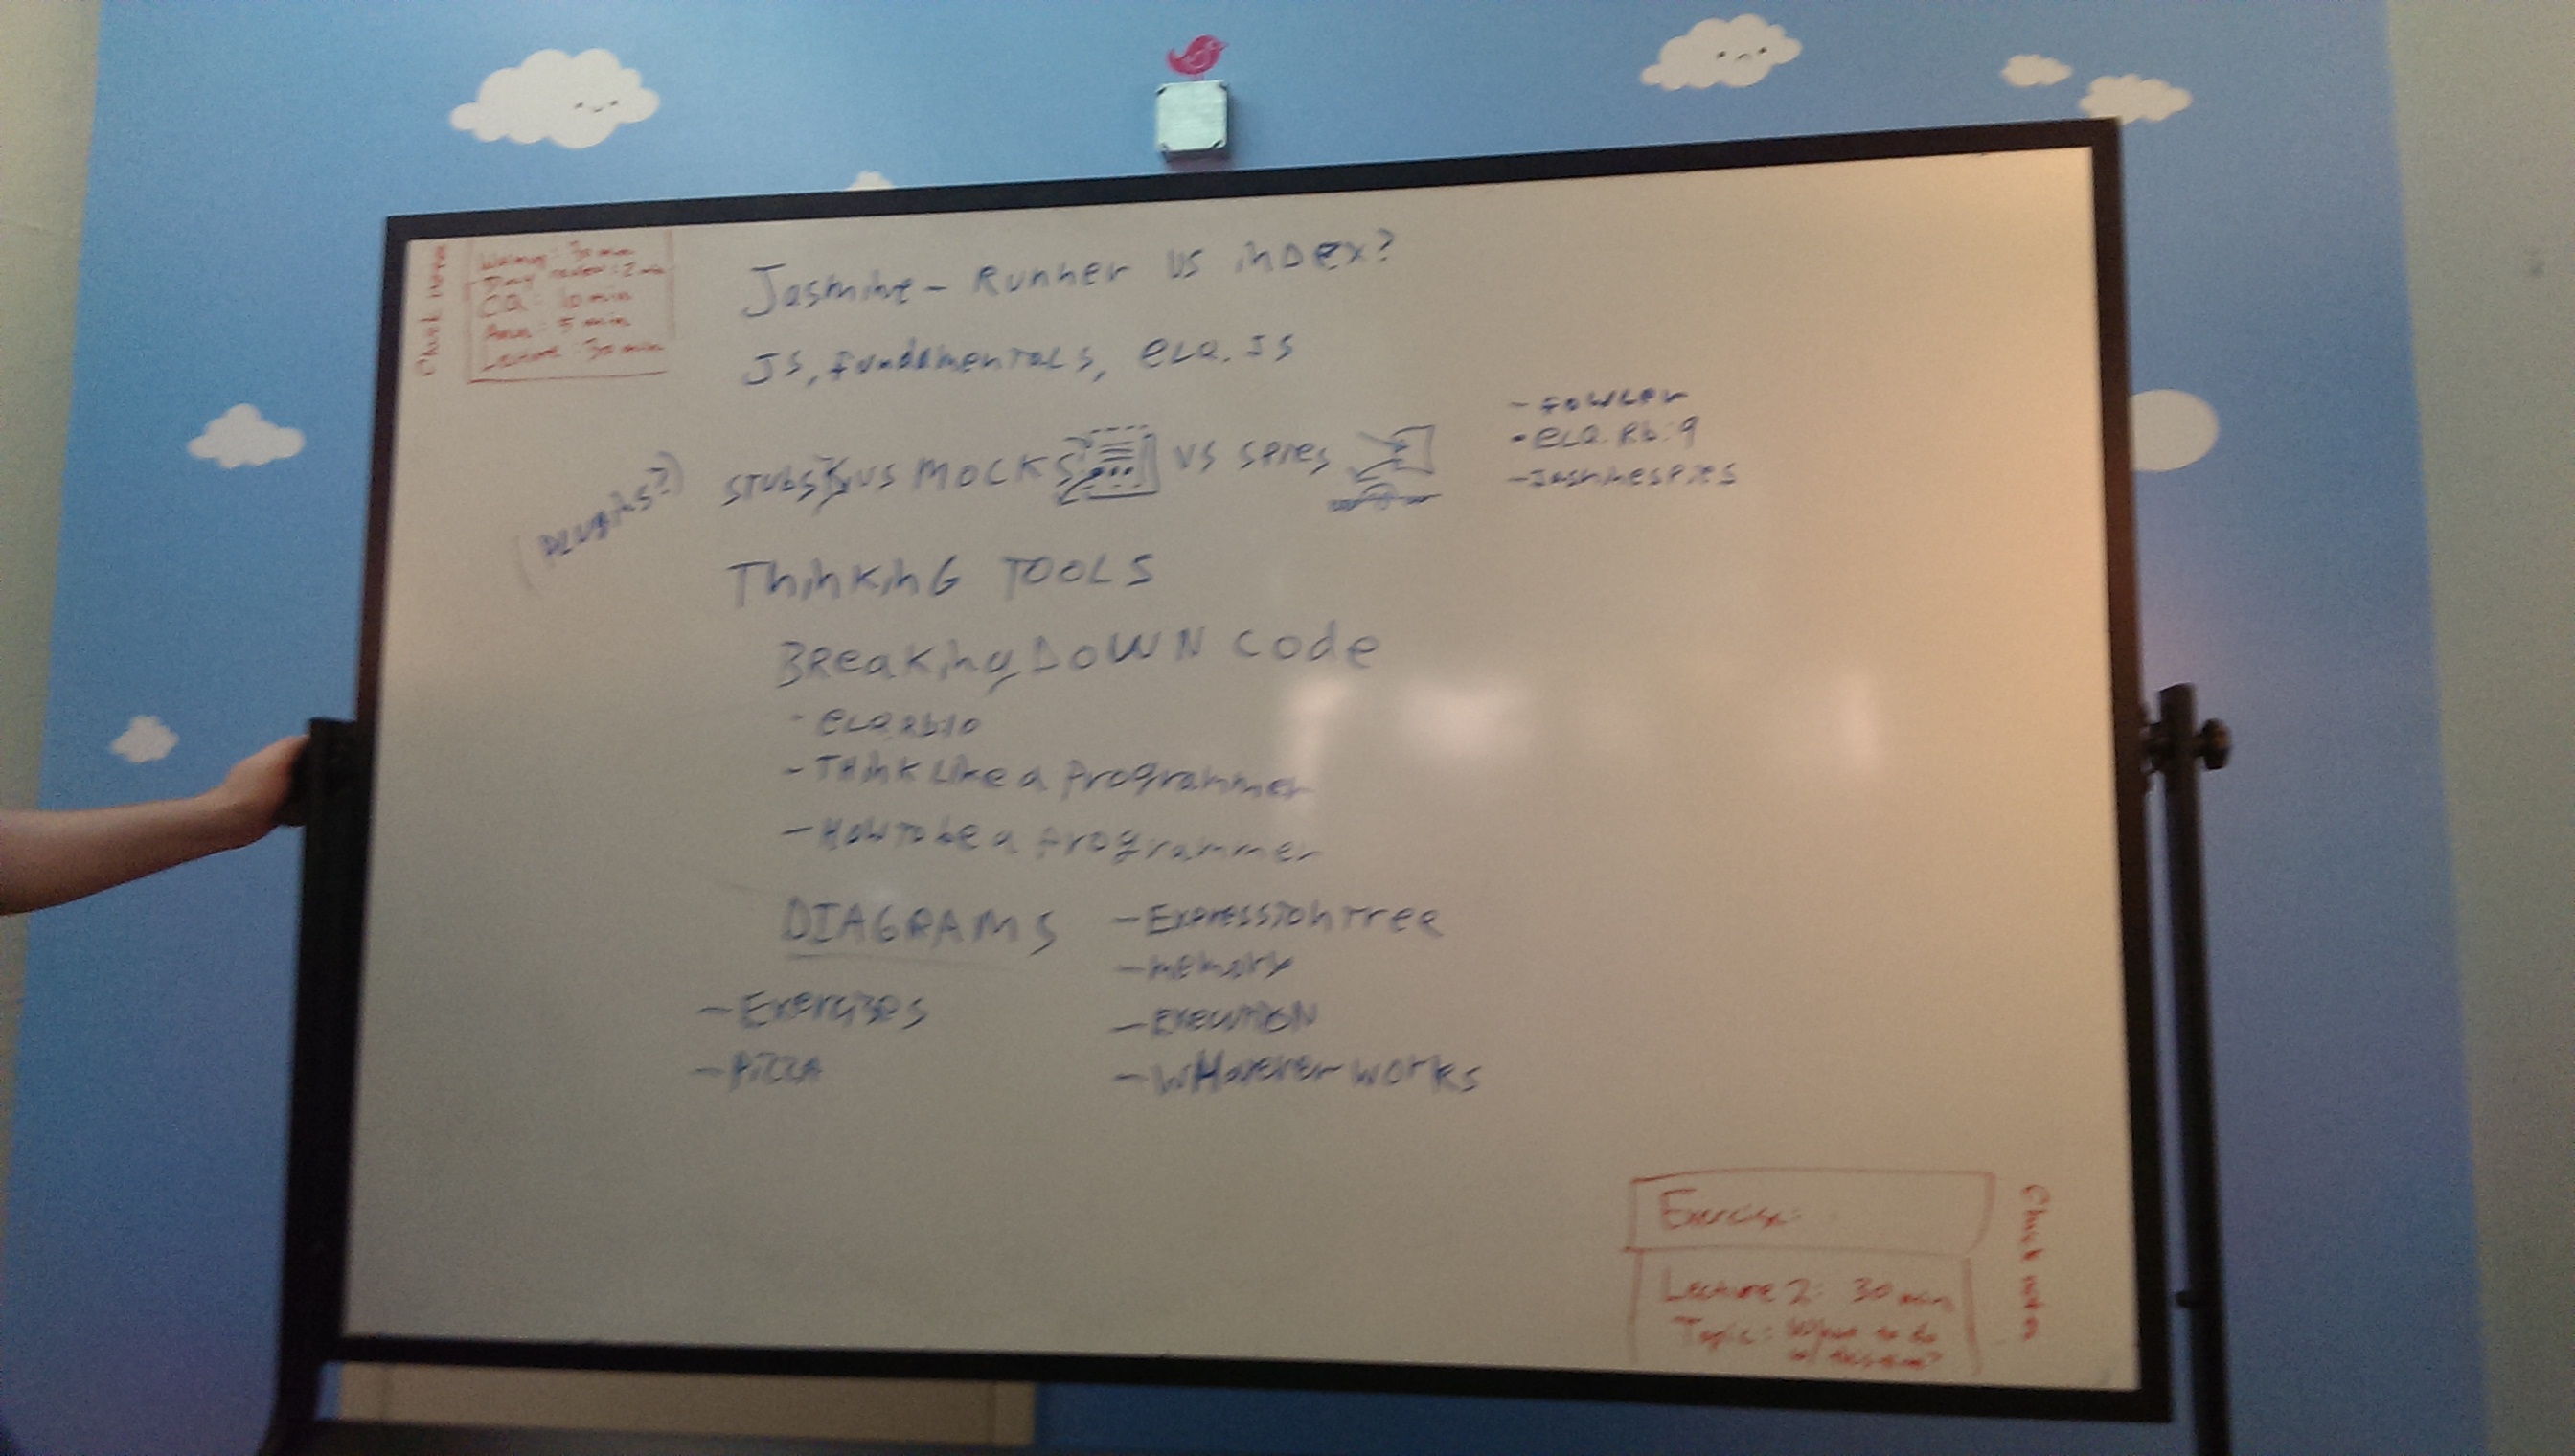 Chuck notes
Warmup: 30 min
Day review: 2 min
CQ: 10 min
Ann: 5 min
Lecture: 30 min
Jasmine - Runner vs inDex?
JS, fundamentals, eLQ.JS
(PLUGINS?)
STUBS vs MOCKS vs SPIES
- Fowler
- eLQ.Rb:9
- Jasmine SPIES
THinKinG TOOLS
BReaKing DOWN Code
- eLQ.Rb:10
- THinK Like a Programmer
- How To be a Programmer
DIAGRAMS
- Expression Tree
- Memory
- Execution
- WHatever works
- Exercises
- PIZZA
Exercise:
Lecture 2: 30 min
Topic: What to do
w/ this time?
Chuck notes